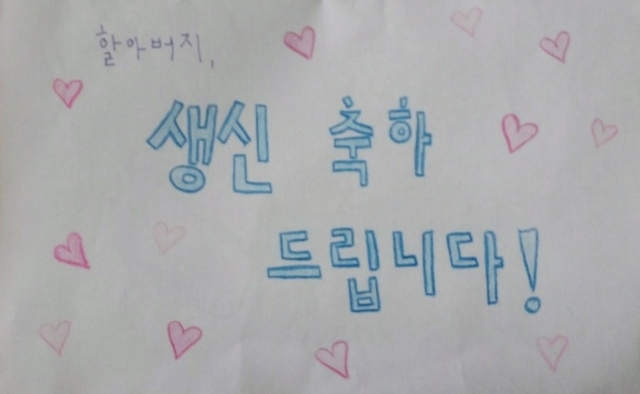 할아버지,
생신 축하
드립니다!